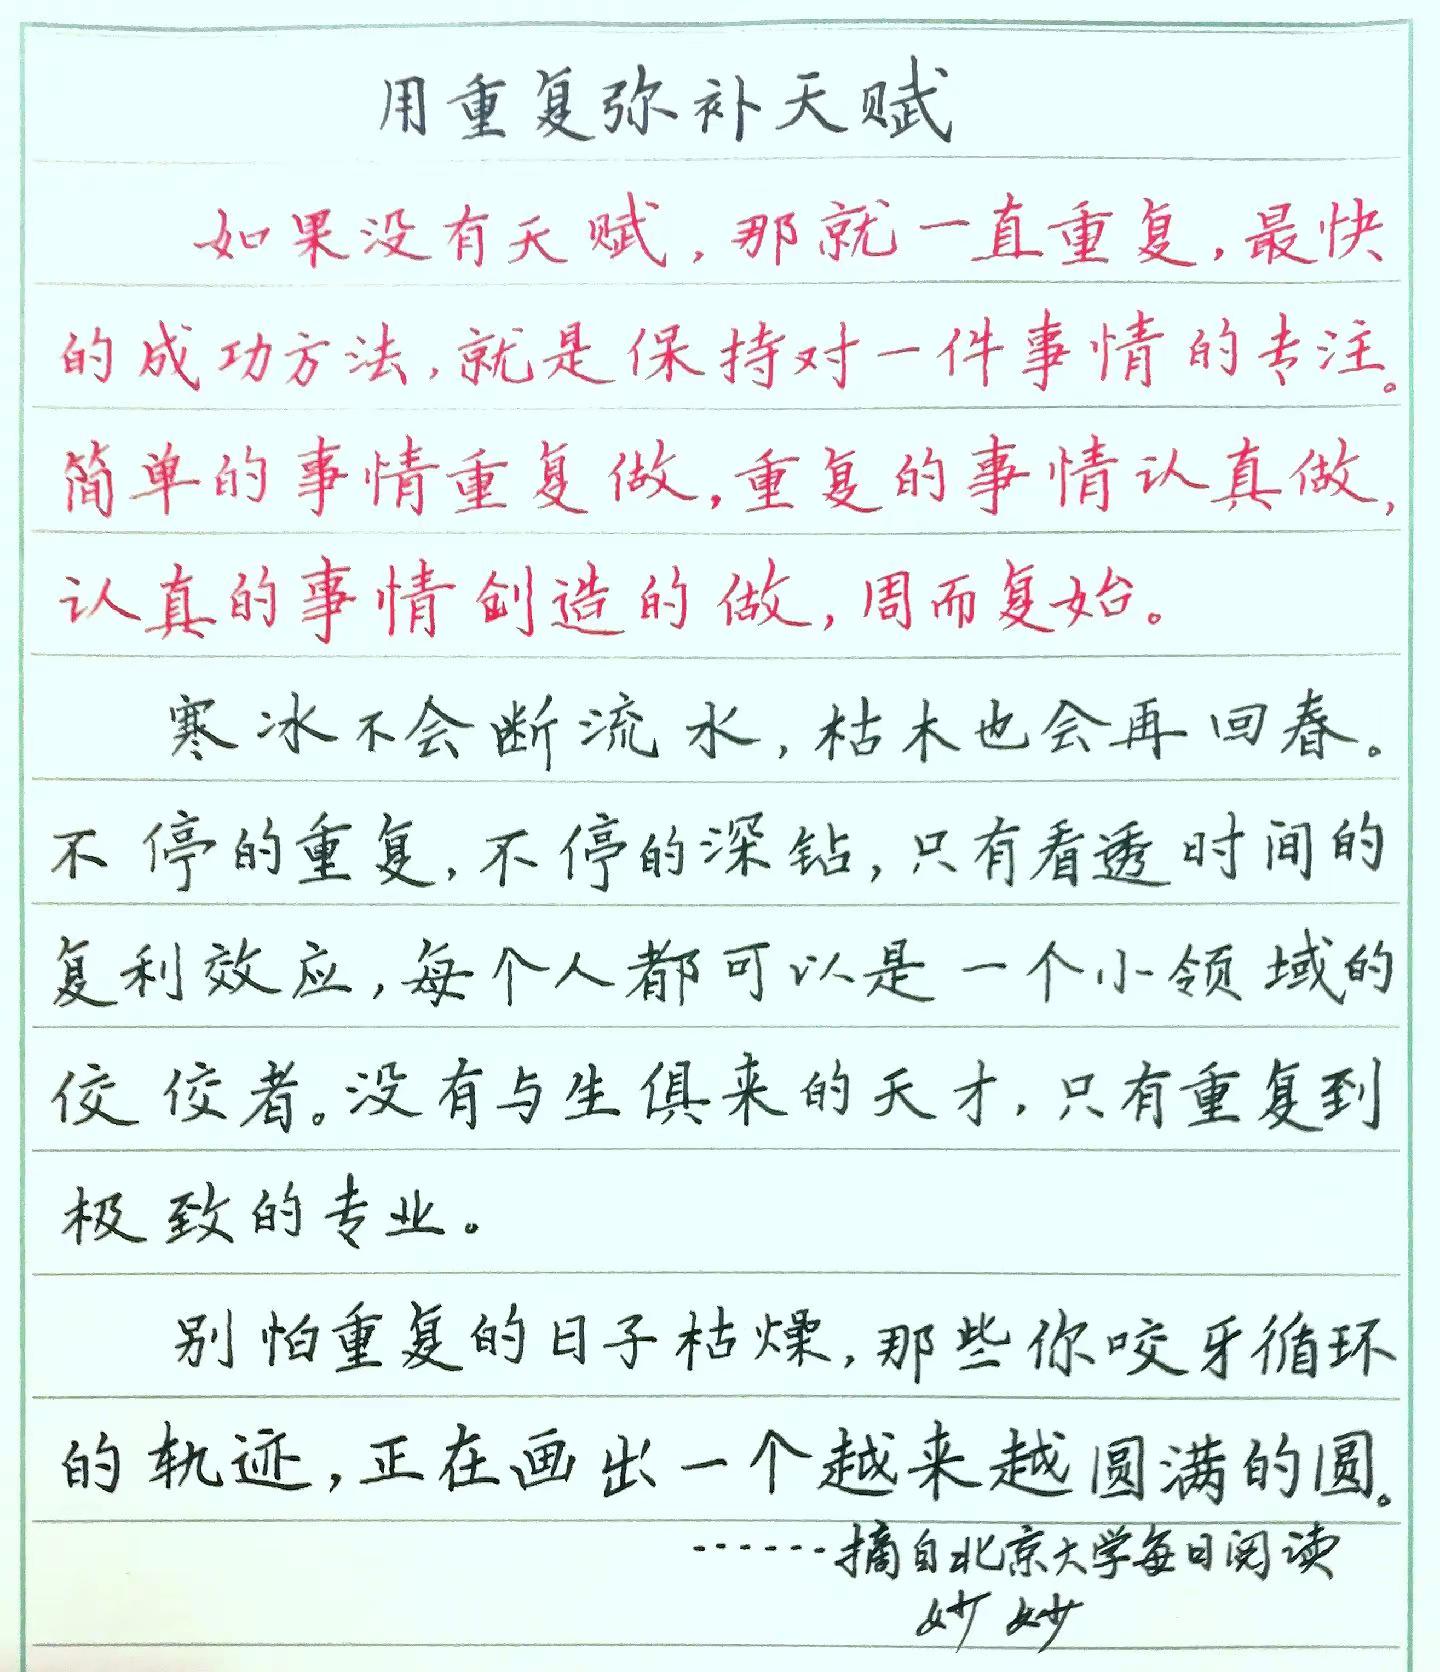 用重复弥补天赋
如果没有天赋,那就一直重复,最快
的成功方法,就是保持对一件事情的专注。
简单的事情重复做,重复的事情认真做,
认真的事情创造的做,周而复始。
寒冰不会断流水,枯木也会再回春。
不停的重复,不停的深钻,只有看透时间的
复利效应,每个人都可以是一个小领域的
佼佼者。没有与生俱来的天才,只有重复到
极致的专业。
别怕重复的日子枯燥,那些你咬牙循环
的轨迹,正在画出一个越来越圆满的圆。
······摘自北京大学每日阅读
妙妙